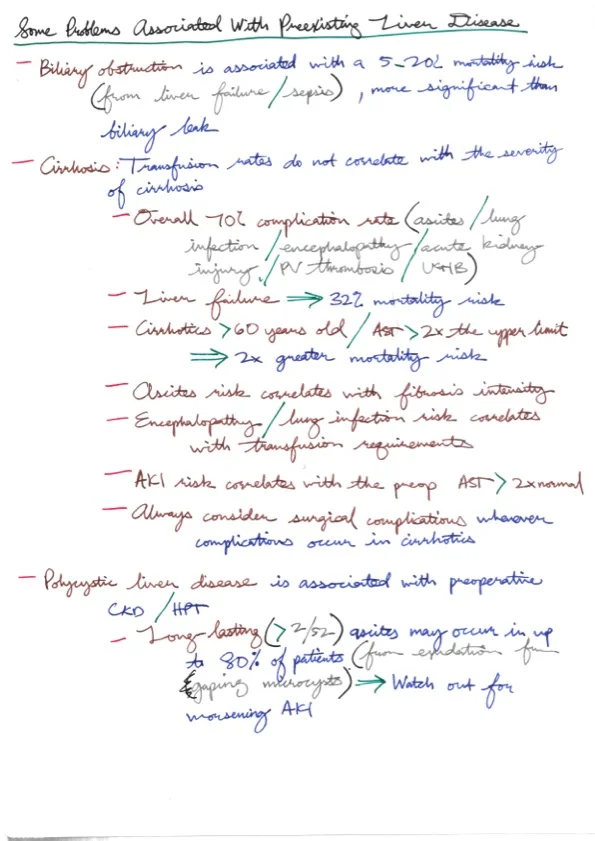 Some Problems Associated With Preexisting Liver Disease
- Biliary obstruction is associated with a 5-20% mortality risk
(from liver failure/sepsis), more significant than
biliary leak
- Cirrhosis: Transfusion rates do not correlate with the severity
of cirrhosis
- Overall 70% complication rate (ascites/lung
infection/encephalopathy/acute kidney
injury/PV thrombosis/UGHB)
- Liver failure ⇒ 32% mortality risk
- Cirrhotics >60 years old/AST>2x the upper limit
⇒ 2x greater mortality risk
- Ascites risk correlates with fibrosis intensity
- Encephalopathy/lung infection risk correlates
with transfusion requirements
- AKI risk correlates with the preop AST>2x normal
- Always consider surgical complications whenever
complications occur in cirrhotics
- Polycystic liver disease is associated with preoperative
CKD/HPT
- Long-lasting (>2/52) ascites may occur in up
to 80% of patients (from exudation
gaping microcysts) ⇒ Watch out for
worsening AKI